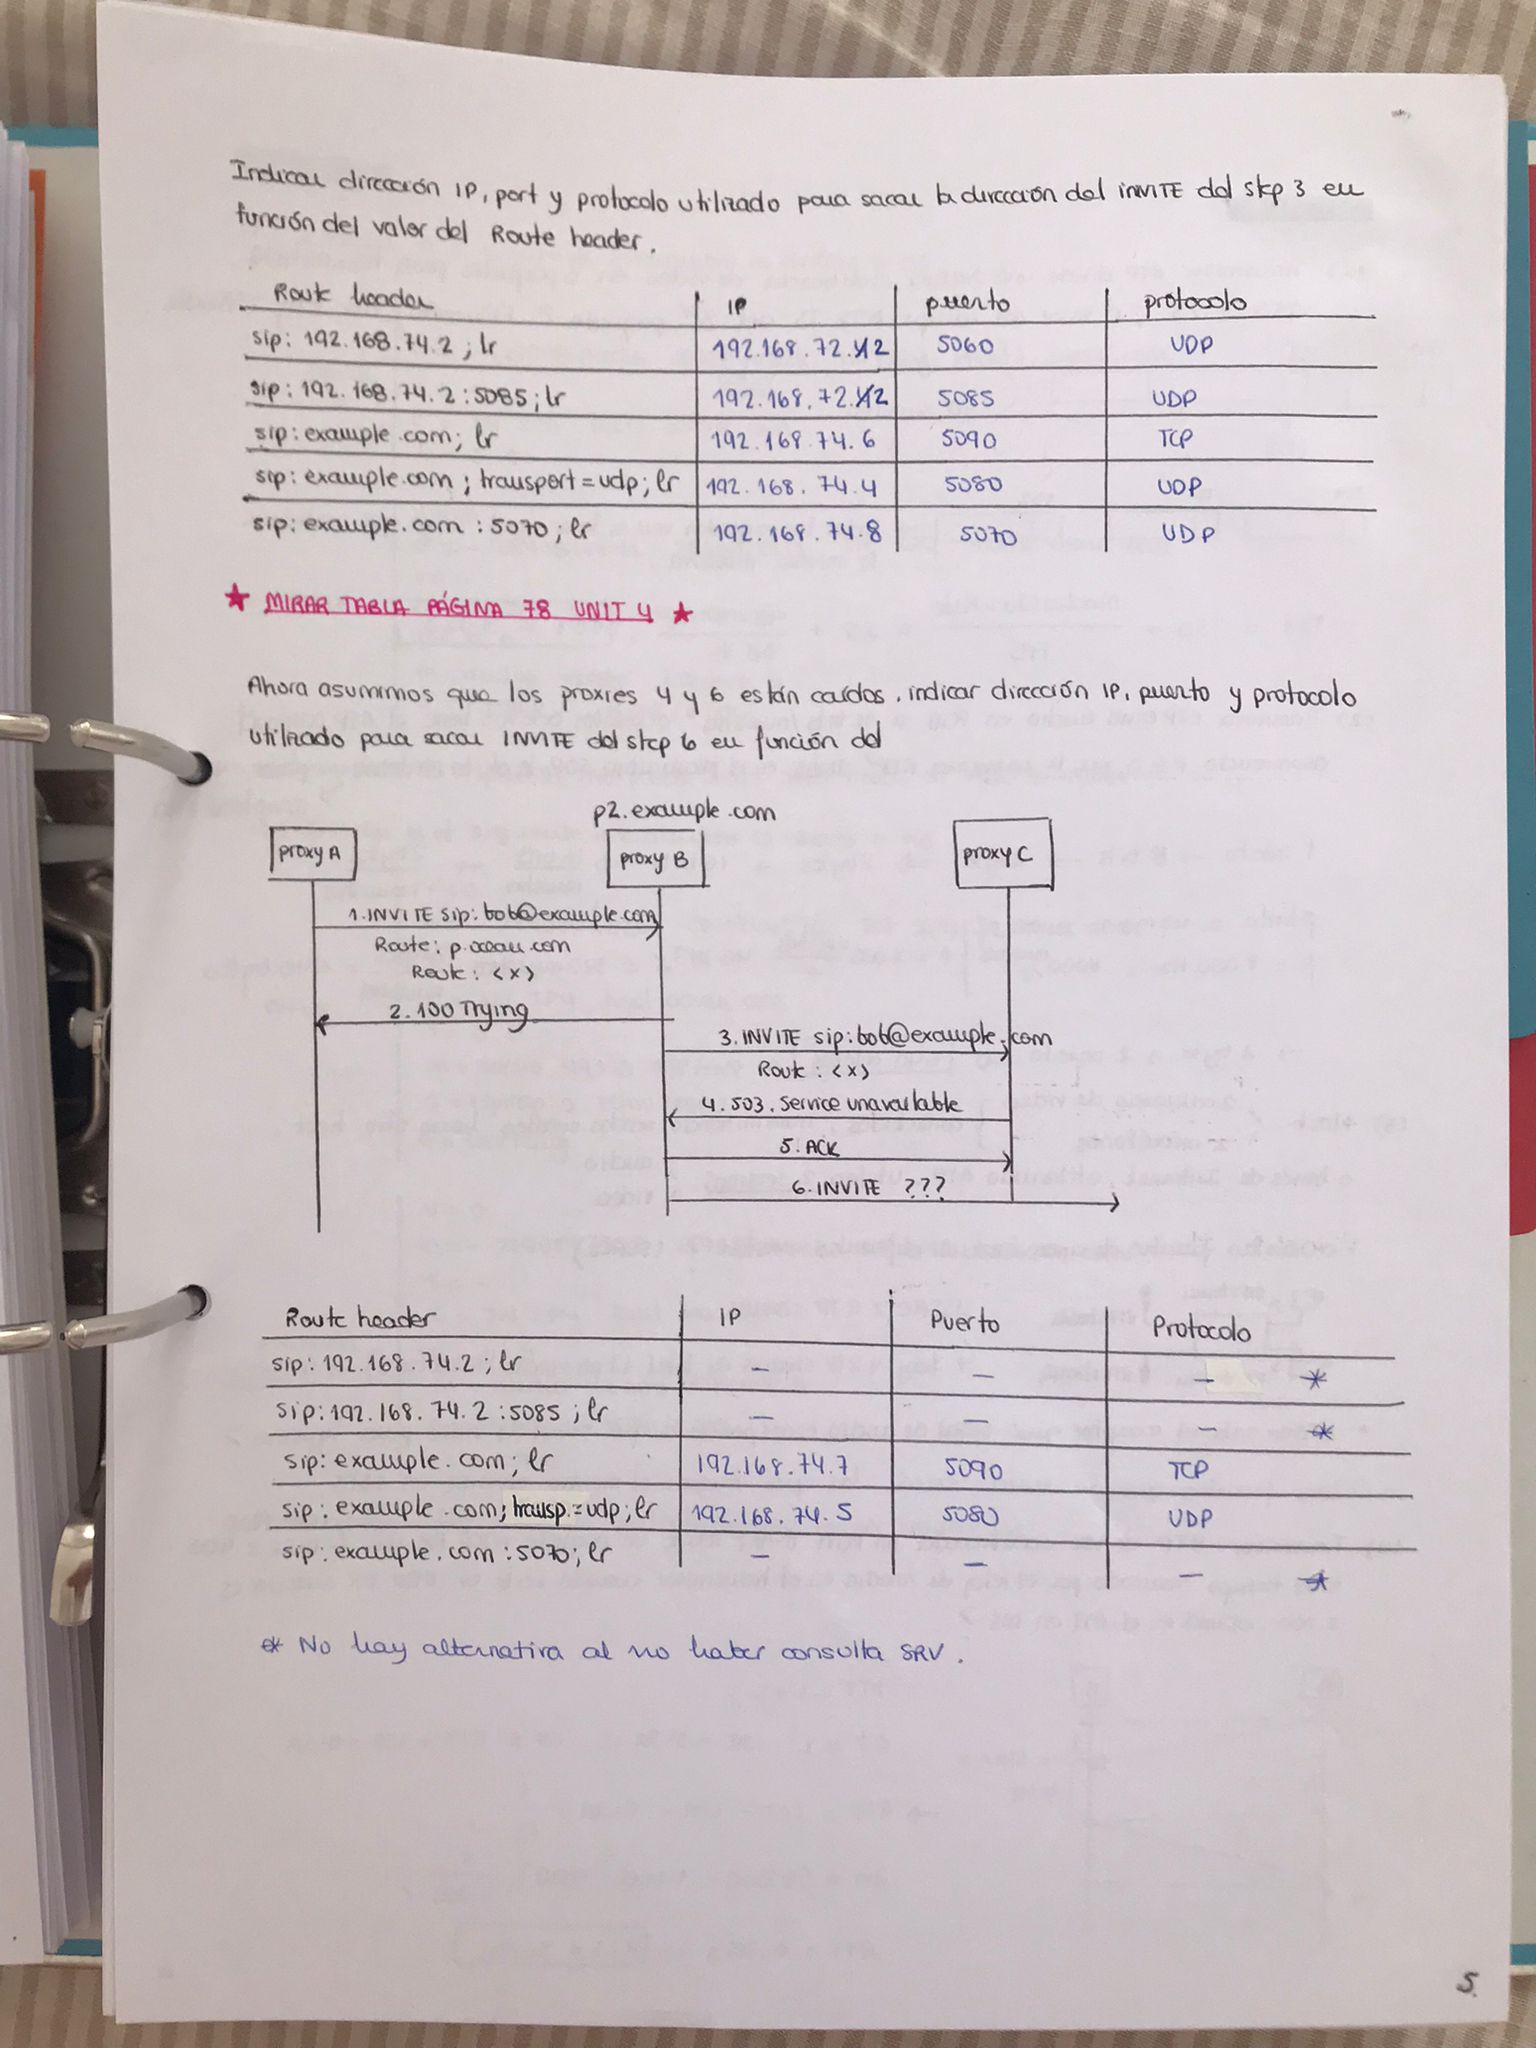 Indicar dirección IP, port y protocolo utilizado para sacar la dirección del INVITE del step 3 en
función del valor del Route header.
Route header IP puerto protocolo
sip: 192.168.74.2 ; lr 192.168.72.2 5060 UDP
sip: 192.168.74.2 : 5085 ; lr 192.168.72.2 5085 UDP
sip: example.com; lr 192.168.74.6 5090 TCP
sip: example.com ; transport = udp ; lr 192.168.74.4 5080 UDP
sip: example.com : 5070 ; lr 192.168.74.8 5070 UDP
★ MIRAR TABLA PÁGINA 78 UNIT 4 ★
Ahora asumimos que los proxies 4 y 6 están caídos. indicar dirección IP, puerto y protocolo
utilizado para sacar INVITE del step 6 en función del
p2.example.com
proxy A proxy B proxy C
1. INVITE sip: bob@example.com
Route: p.ocean.com
Route: <x>
2. 100 Trying
3. INVITE sip: bob@example.com
Route: <x>
4. 503. Service unavailable
5. ACK
6. INVITE ???
Route header IP Puerto Protocolo
sip: 192.168.74.2 ; lr - - - *
sip: 192.168.74.2 : 5085 ; lr - - - *
sip: example.com; lr 192.168.74.7 5090 TCP
sip: example.com; transp.=udp; lr 192.168.74.5 5080 UDP
sip: example.com : 5070; lr - - - *
* No hay alternativa al no haber consulta SRV.
5.